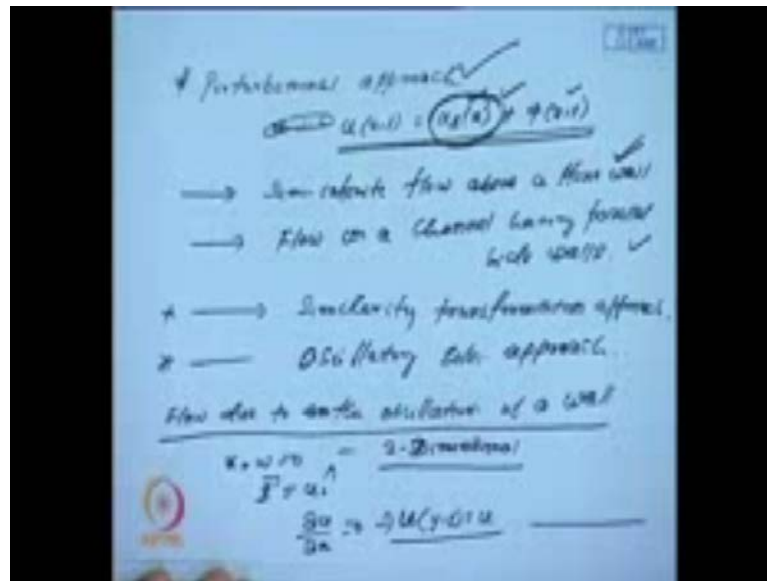 * Perturbational approach ✓
u(x,t) = u_s(x) + φ(x,t)
→ Semi infinite flow above a plane wall
→ Flow on a channel having parallel side walls. ✓
* → Similarity transformation approach.
* — Oscillatory soln approach.
Flow due to oscillation of a wall
= 2-Dimensional
∂u/∂x = 0 ⇒ u(y,t) = u